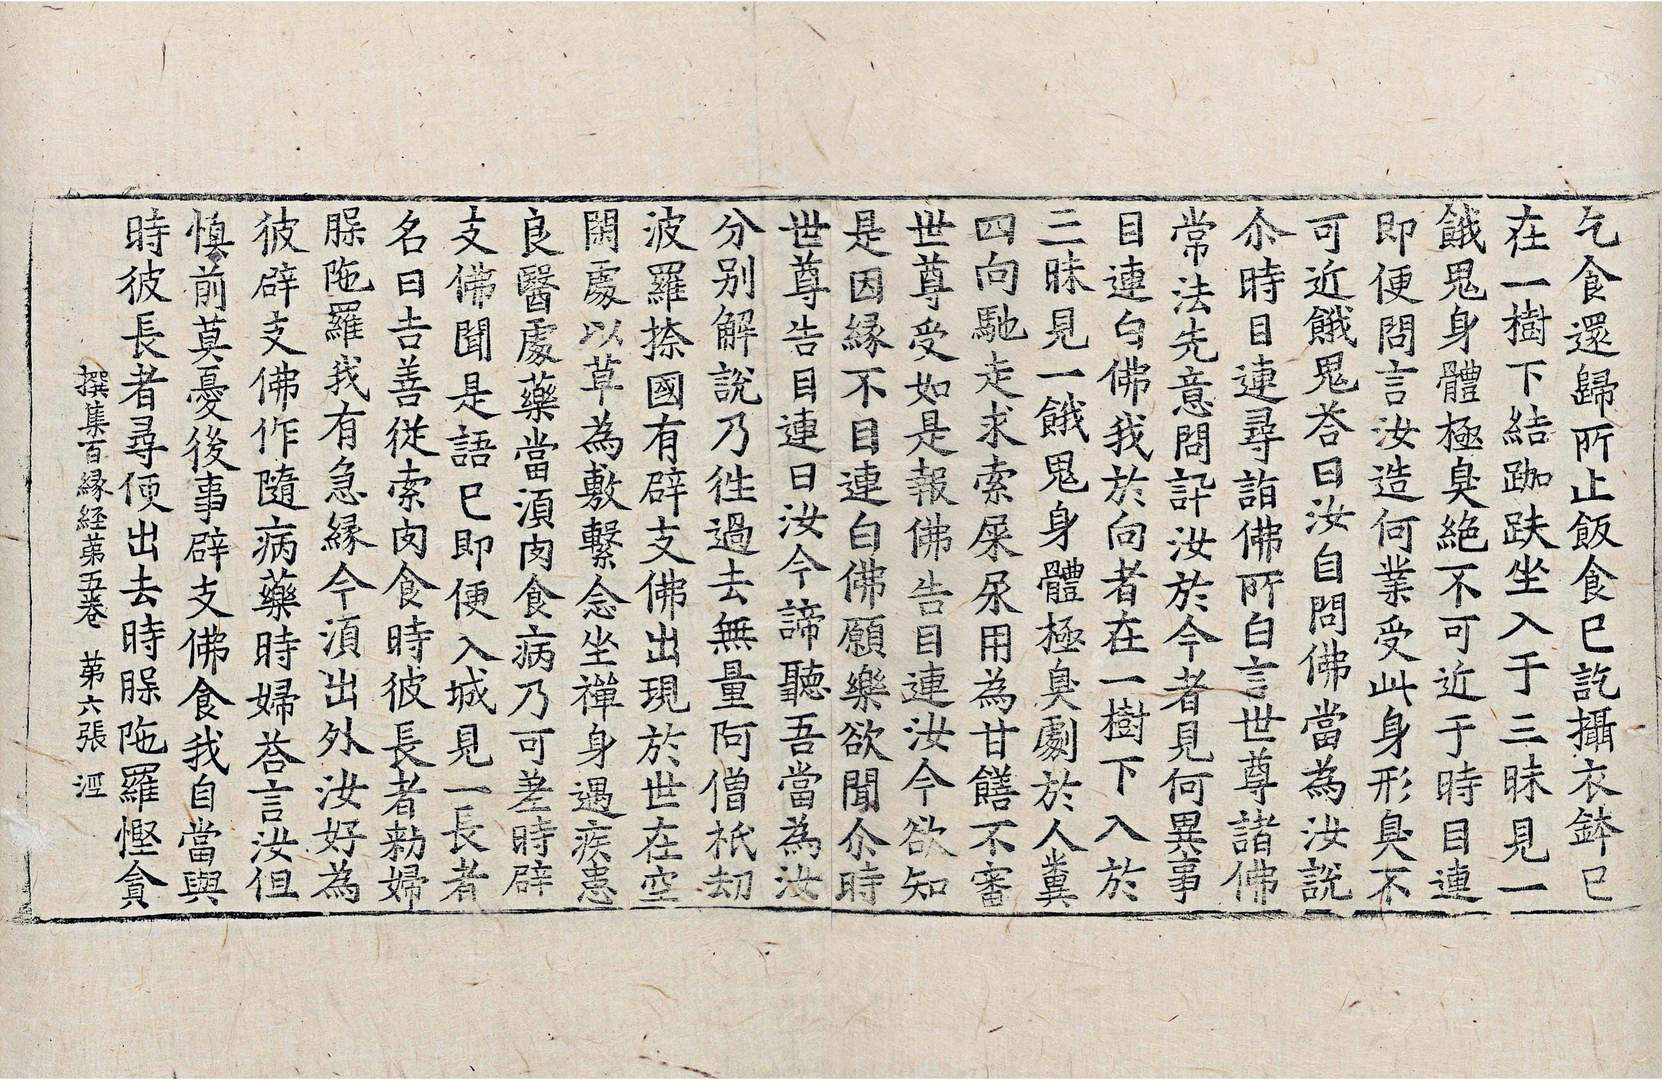 乞食還歸所止飯食已訖攝衣鉢已
在一樹下結跏趺坐入于三昧見一
餓鬼身體極臭絶不可近于時目連
即便問言汝造何業受此身形臭不
可近餓鬼荅曰汝自問佛當為汝說
尒時目連尋詣佛所白言世尊諸佛
常法先意問訊汝於今者見何異事
目連白佛我於向者在一樹下入於
三昧見一餓鬼身體極臭劇於人糞
四向馳走求索屎尿用為甘饍不審
世尊受如是報佛告目連汝今欲知
是因緣不目連白佛願樂欲聞尒時
世尊告目連曰汝今諦聽吾當為汝
分别解說乃往過去無量阿僧祇劫
波羅㮈國有辟支佛出現於世在空
閑處以草為敷繫念坐禪身遇疾患
良醫處藥當湏肉食病乃可差時辟
支佛聞是語已即便入城見一長者
名曰吉善從索肉食時彼長者勑婦
𦞅陁羅我有急緣今湏出外汝好為
彼辟支佛作隨病藥時婦荅言汝但
慎前莫憂後事辟支佛食我自當與
時彼長者尋便出去時𦞅陁羅慳貪
撰集百緣経苐五卷　苐六張　涇